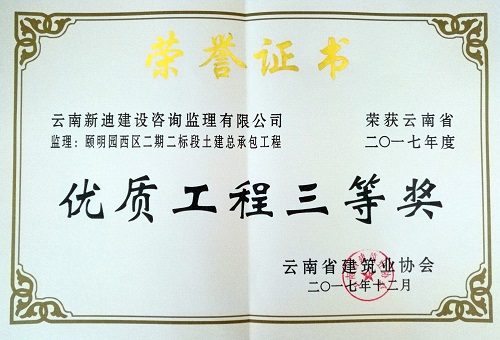 荣誉证书
云南新迪建设咨询监理有限公司
监理：颐明园西区二期二标段土建总承包工程
荣获云南省
二〇一七年度
优质工程三等奖
云南省建筑业协会
二〇一七年十二月